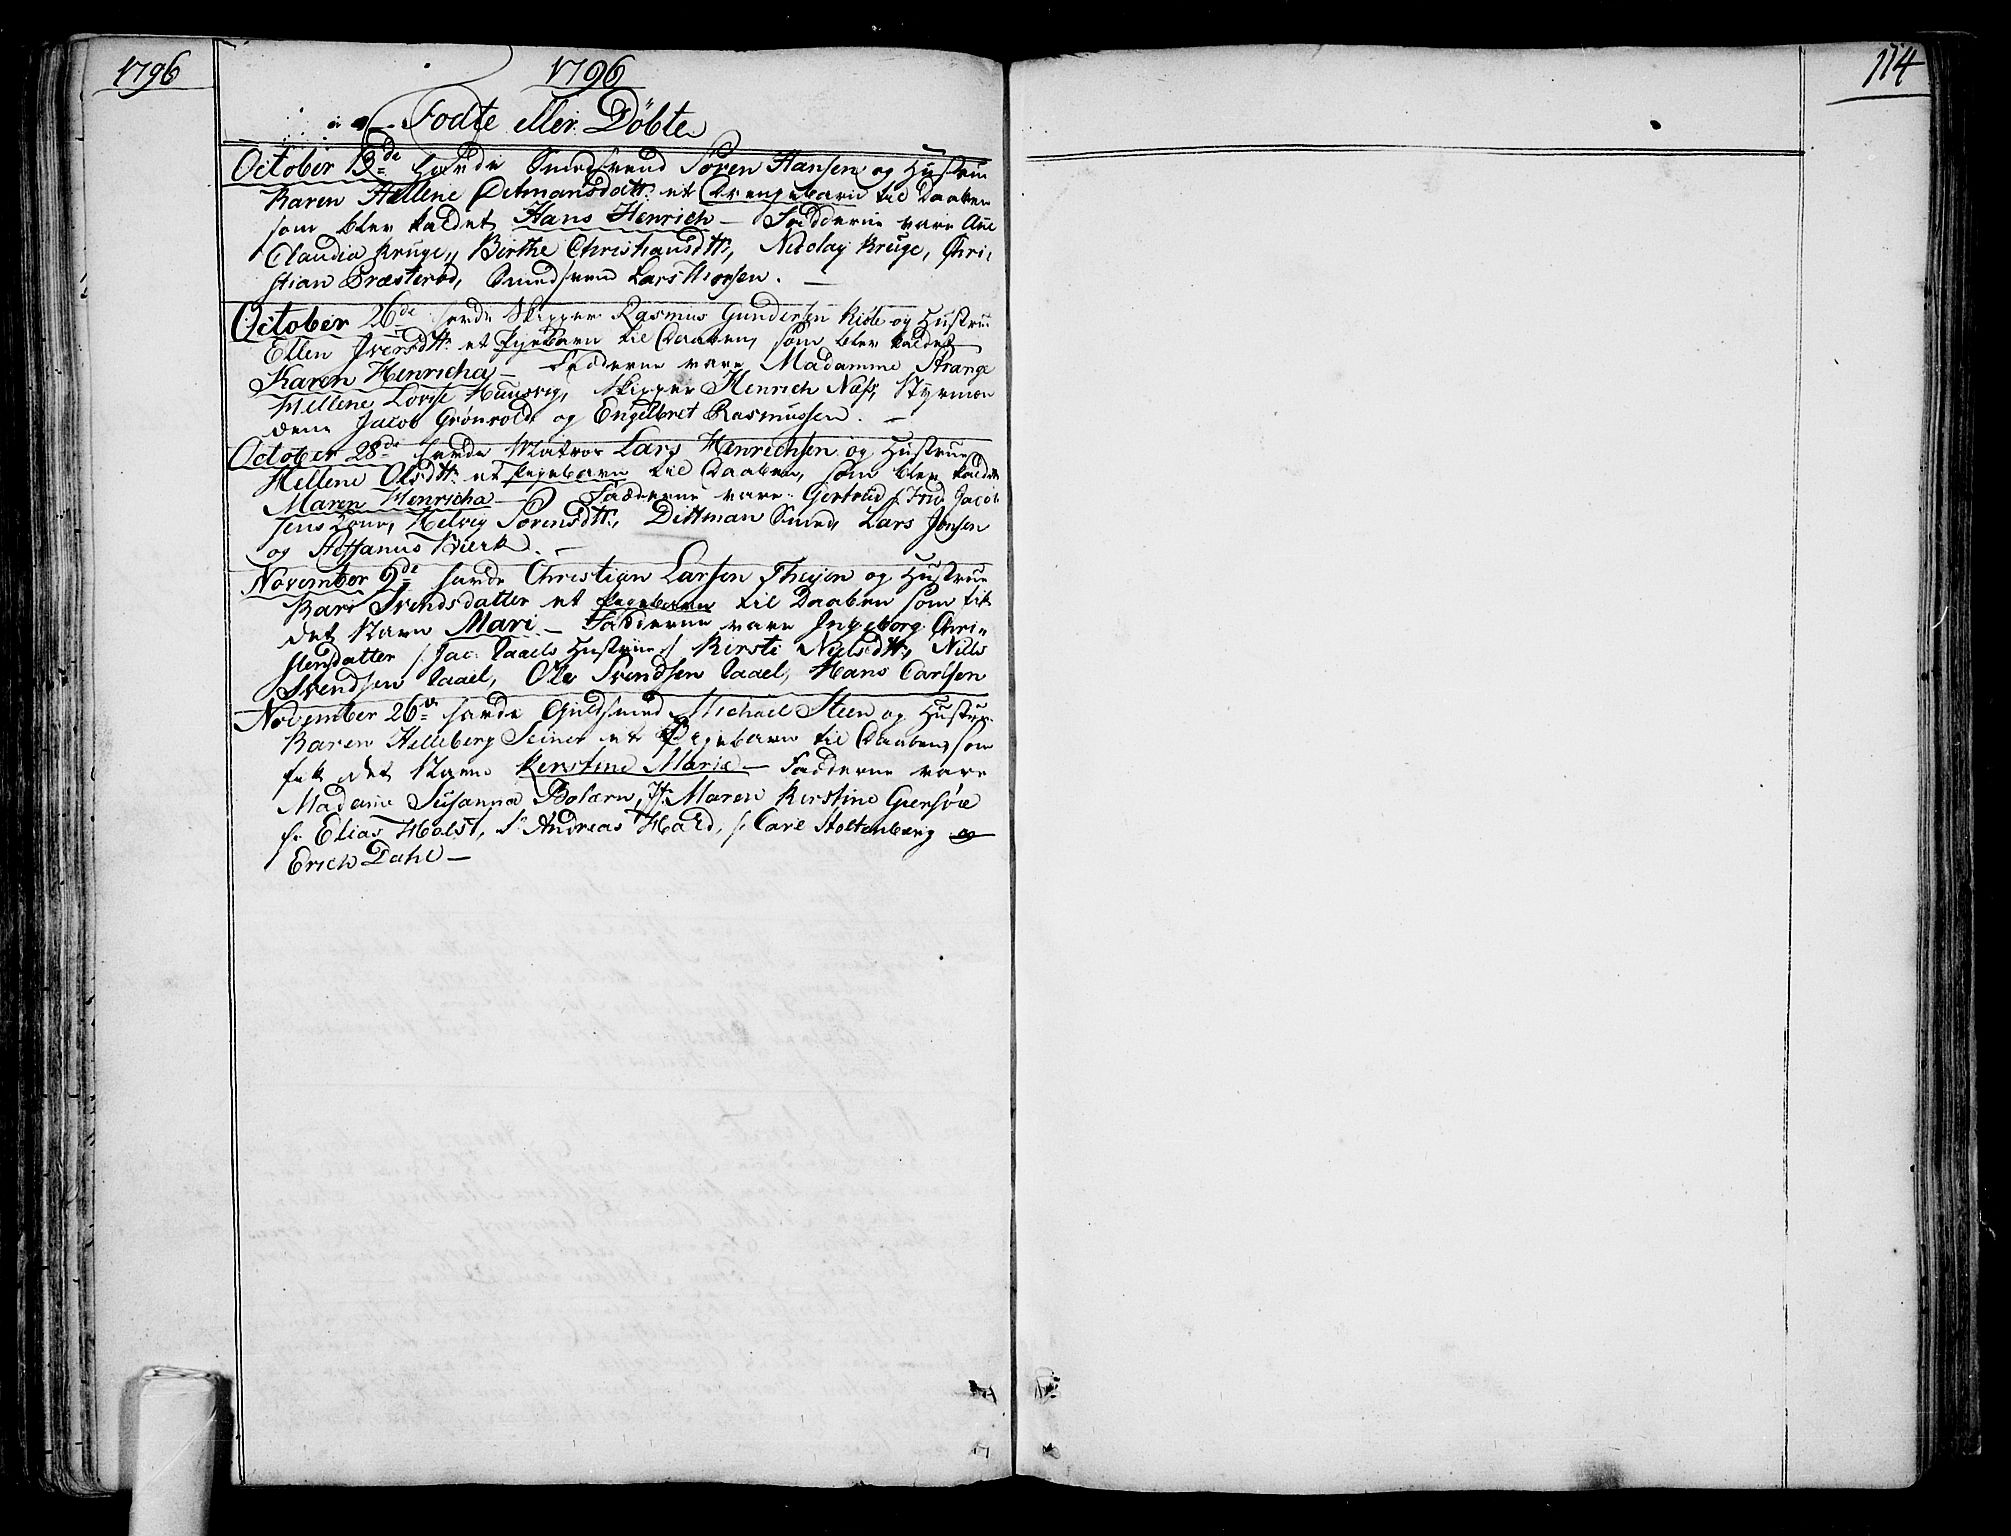 1796
1796
114
Fødte eller Døbte
October 13de havde Smedsvend Søren Hansen og Hustrue
Karen Hellene Ditmansdatt: et Drengebarn til Daaben
som blev kaldet Hans Henrich — Fadderne vare Ane
Claudia Kruge, Birthe Christiansdtt:, Nicolay Kruge, Chri-
stian Præsterød, Smedsvend Lars Thorsen. —
October 26de havde Skipper Rasmus Gundersen og Hustrue
Ellen Iversdtt: et Pigebarn til Daaben, som blev kaldet
Karen Henricha — Fadderne vare Madamme Strange
Hellene Lovise Huusvig, Skipper Henrich Næss, Styrmæn
dene Jacob Grönvold og Engelbret Rasmussen. —
October 28de havde Matros Lars Henrichsen og Hustrue
Hellene Olsdtt: et Pigebarn til Daaben, som blev kaldet
Maren Henricha — Fadderne vare: Gertrud Frid: Jacob
sens Kone, Helvig Sørensdtt:, Dittman Smed, Lars Jensen
og Steffanus Kierk. —
November 9de havde Christian Larsen Theyen og Hustrue
Kari Svendsdatter et Pigebarn til Daaben som fik
det Navn Mari. — Fadderne vare Ingeborg Chri-
stensdatter /: Jac: Taaels Hustrue :/ Kirsti Nielsdtt:, Niels
Svendsen Taael, Ole Svendsen Taael, Hans Carlsen
November 26de havde Guldsmed Michael Steen og Hustrue
Karen Helleberg Seiner et Pigebarn til Daaben, som
fik det Navn Kerstine Marie — Fadderne vare
Madame Susanna Bolærn, Jf: Maren Kirstine Giersøe
Sr Elias Holst, Sr Andreas Hald, Sr Carl Stoltenberg og
Erich Dahl —